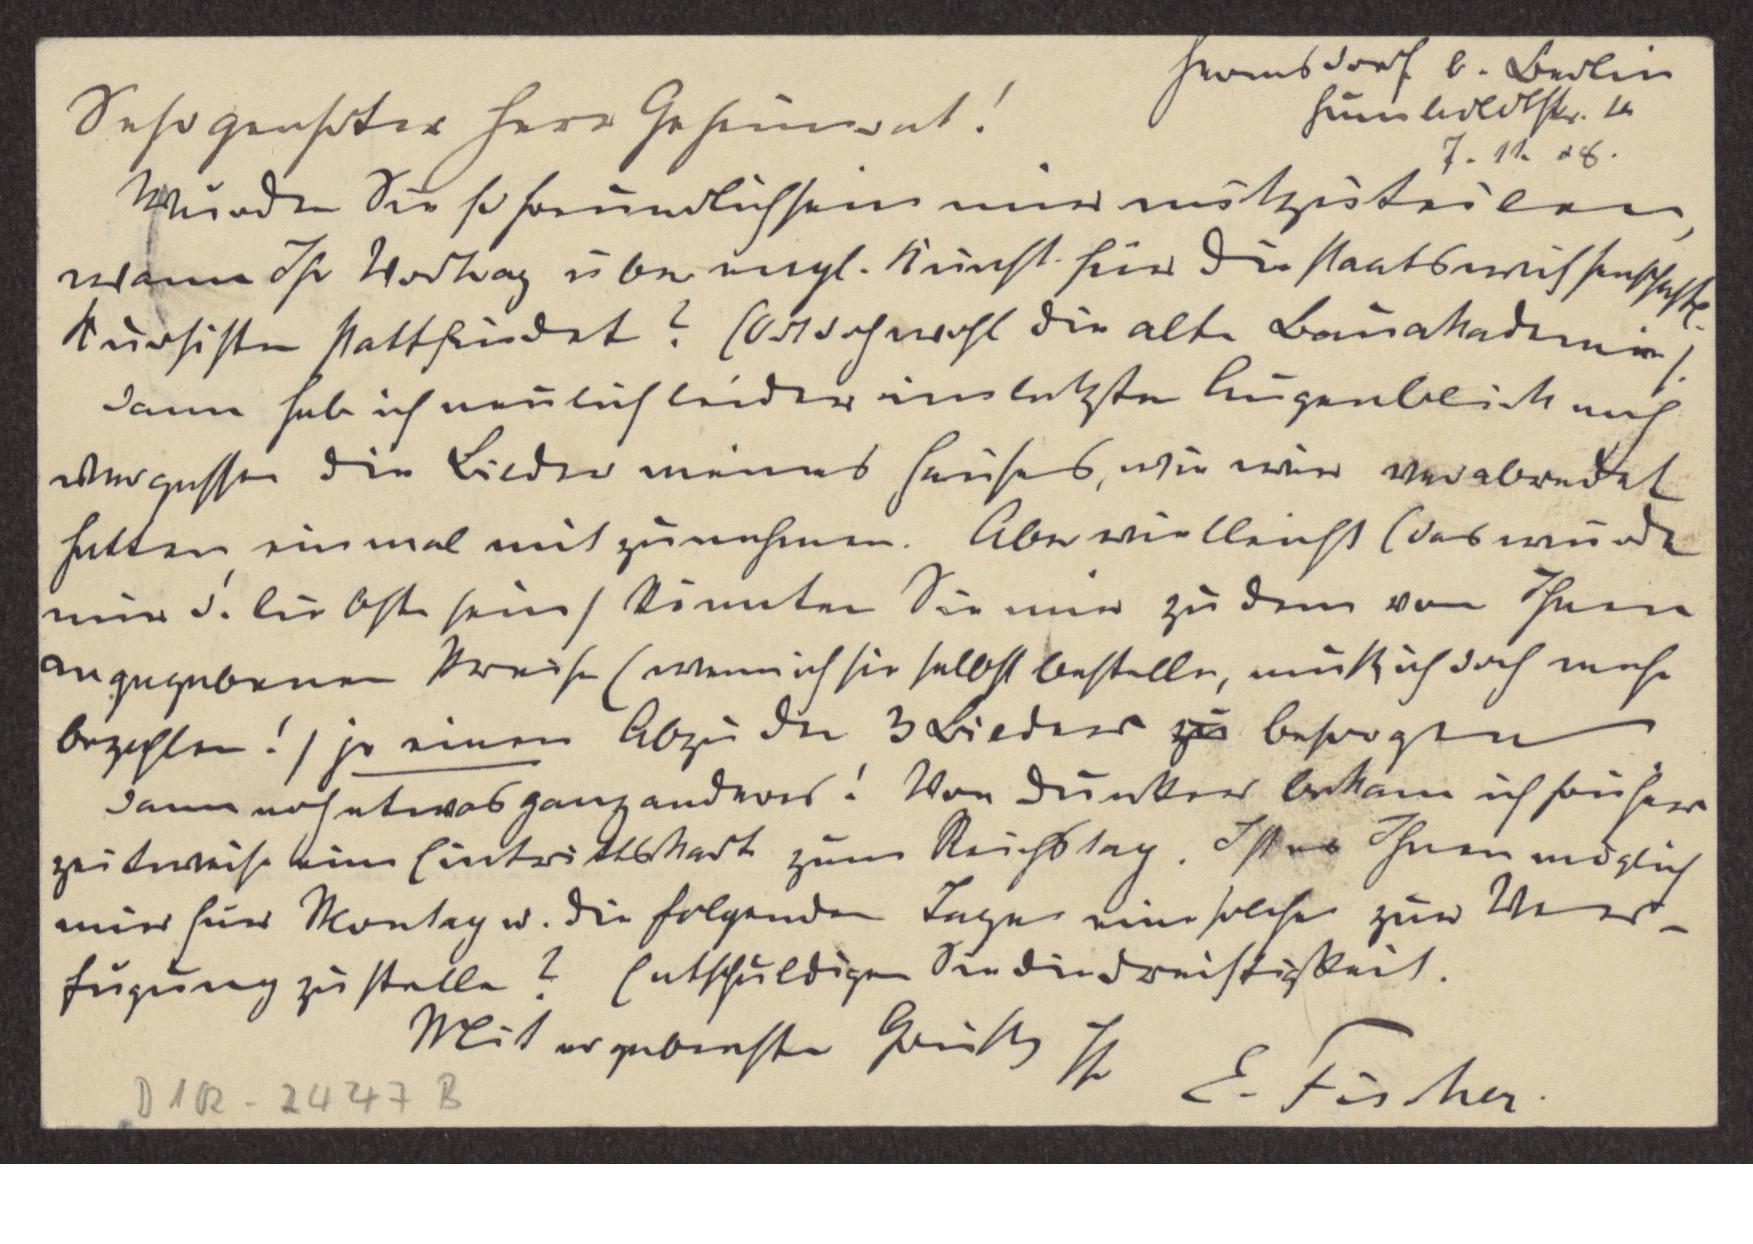 Hermsdorf b. Berlin
Humboldtstr.
7. 11. 08.
Sehr geehrter Herr Geheimrat!
Würden Sie so freundlich sein mir mitzuteilen,
wann Ihr Vortrag über engl. Kunst für die staatswissenschaftl.
Kursisten stattfindet? (Ort doch wohl die alte Bauakademie).
Dann hab ich neulich leider im letzten Augenblick noch
vergessen die Bilder meines Hauses, wie wir verabredet
hatten, einmal mitzunehmen. Aber vielleicht (das würde
mir d. liebste sein) könnten Sie mir zu dem von Ihnen
angegebenen Preise (wenn ich sie selbst bestelle, muß ich doch mehr
bezahlen!) je einen Abzug der 3 Bilder zu besorgen
Dann noch etwas ganz anderes! Von Dunker bekam ich früher
zeitweise eine Eintrittskarte zum Reichstag. Ist es Ihnen möglich
mir für Montag u. die folgenden Tage eine solche zur Ver-
fügung zu stellen? Entschuldigen Sie die Dreistigkeit.
Mit ergebensten Grüßen Ihr
E. Fischer.
D 102 - 2447 B